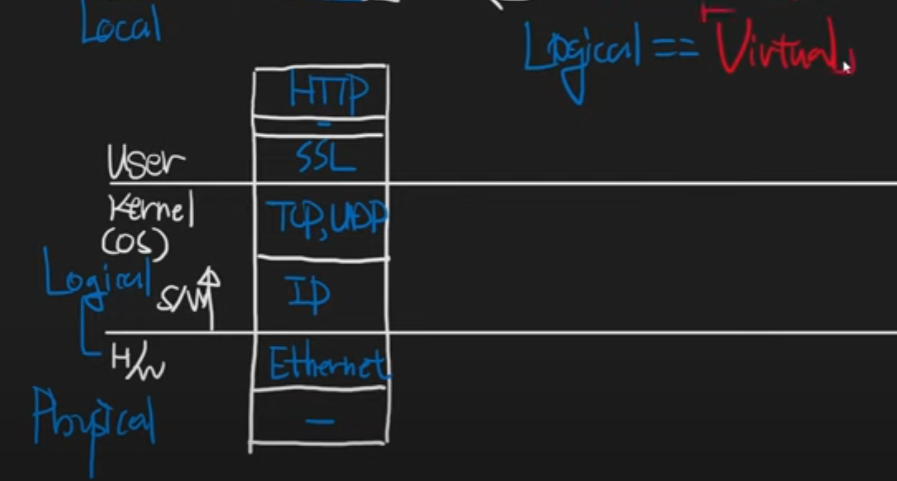 Local
Logical == Virtual
HTTP
-
User
SSL
Kernel
(OS)
TCP, UDP
Logical
S/W
IP
H/W
Ethernet
Physical
-